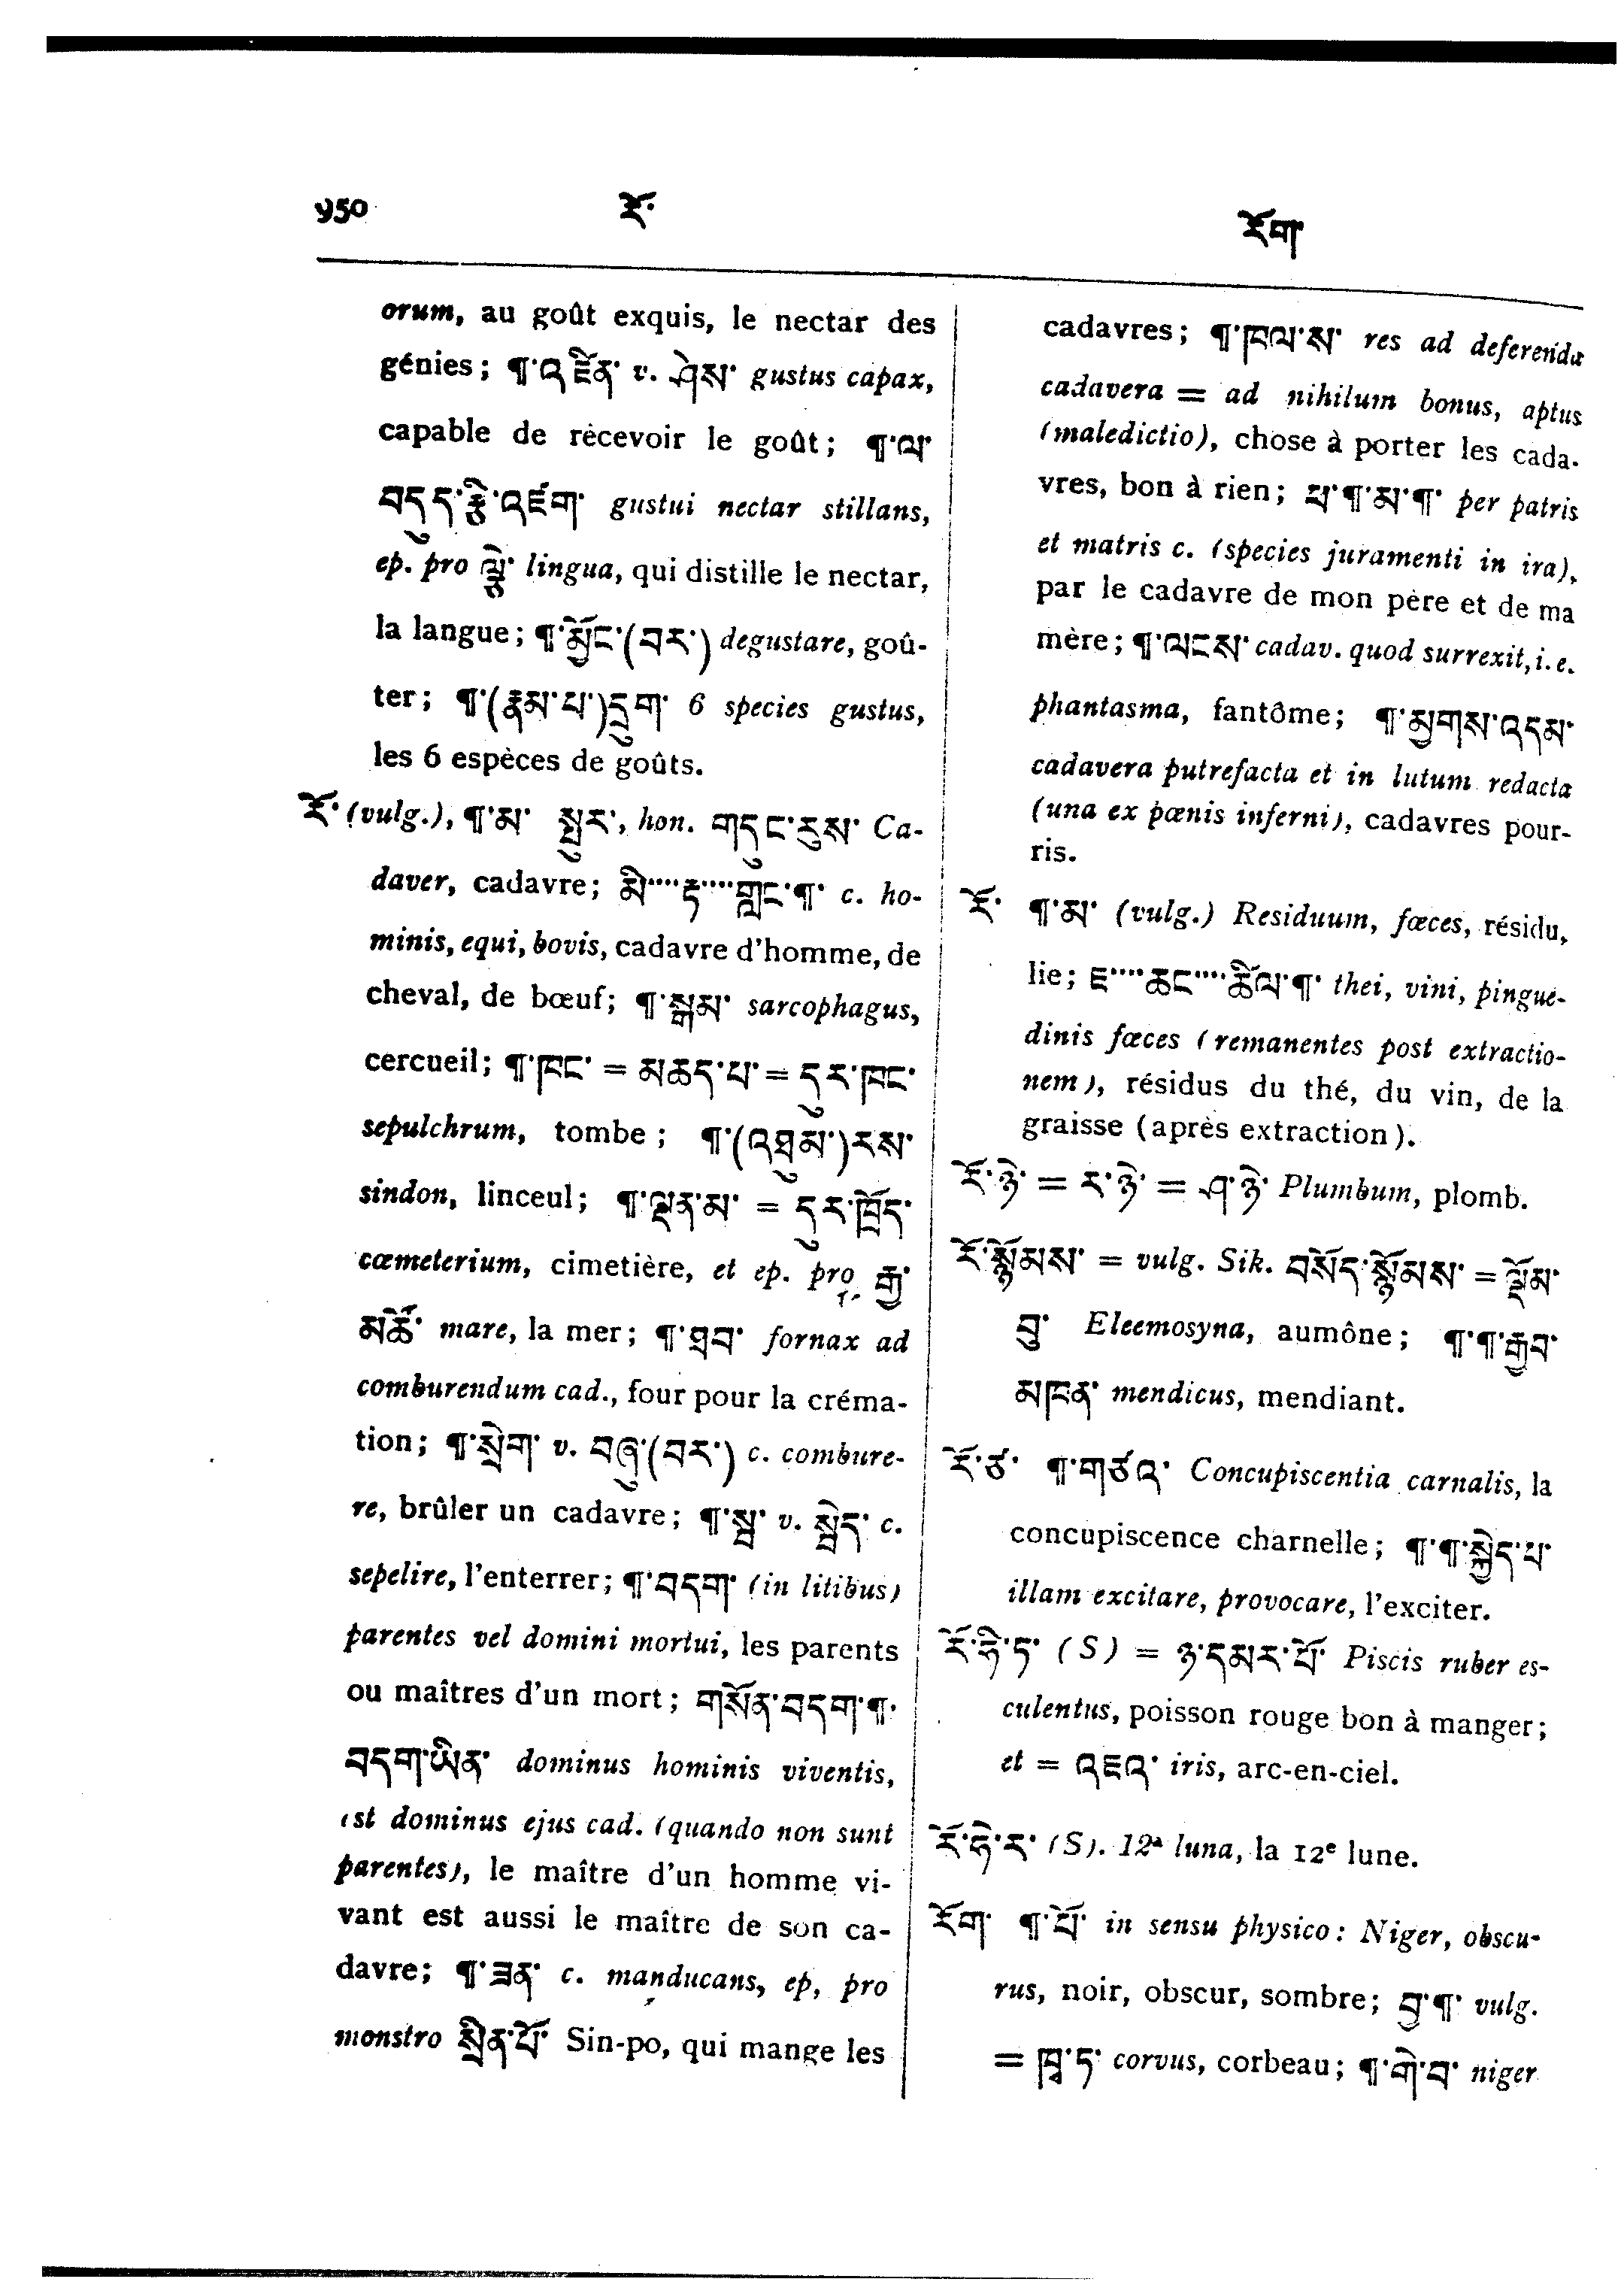 950 རོ་ རོག་
orum, au goût exquis, le nectar des
génies; ¶་འཛིན་ v. ཤེས་ gustus capax,
capable de recevoir le goût; ¶་ལ་
བདུད་རྩི་འཛག་ gustui nectar stillans,
ep. pro ལྕེ་ lingua, qui distille le nectar,
la langue; ¶་མྱོང་(བར་) degustare, goû-
ter; ¶་(རྣམ་པ་)དྲུག་ 6 species gustus,
les 6 espèces de goûts.
རོ་ (vulg.), ¶་མ་ སྤུར་, hon. གདུང་རུས་ Ca-
daver, cadavre; མི་...རྟ་...གླང་¶་ c. ho-
minis, equi, bovis, cadavre d'homme, de
cheval, de bœuf; ¶་སྒམ་ sarcophagus,
cercueil; ¶་ཁང་ = མཆད་པ་ = དུར་ཁང་
sepulchrum, tombe; ¶་(འཐུམ་)རས་
sindon, linceul; ¶་ལྡན་མ་ = དུར་ཁྲོད་
cœmeterium, cimetière, et ep. pro རྒྱ་
མཚོ་ mare, la mer; ¶་ཐབ་ fornax ad
comburendum cad., four pour la créma-
tion; ¶་སྲེག་ v. བཞུ་(བར་) c. combure-
re, brûler un cadavre; ¶་སྦ་ v. སྦེད་ c.
sepelire, l'enterrer; ¶་བདག་ (in litibus)
parentes vel domini mortui, les parents
ou maîtres d'un mort; གསོན་བདག་¶་
བདག་ཡིན་ dominus hominis viventis,
est dominus ejus cad. (quando non sunt
parentes), le maître d'un homme vi-
vant est aussi le maître de son ca-
davre; ¶་ཟན་ c. manducans, ep, pro
monstro སྲིན་པོ་ Sin-po, qui mange les
cadavres; ¶་ཁལ་ས་ res ad deferenda
cadavera = ad nihilum bonus, aptus
(maledictio), chose à porter les cada-
vres, bon à rien; ཕ་¶་མ་¶་ per patris
et matris c. (species juramenti in ira),
par le cadavre de mon père et de ma
mère; ¶་ལངས་ cadav. quod surrexit, i. e.
phantasma, fantôme; ¶་མྱགས་འདམ་
cadavera putrefacta et in lutum redacta
(una ex pœnis inferni), cadavres pour-
ris.
རོ་ ¶་མ་ (vulg.) Residuum, fœces, résidu,
lie; ཇ་...ཆང་...ཚིལ་¶་ thei, vini, pingue-
dinis fœces (remanentes post extractio-
nem), résidus du thé, du vin, de la
graisse (après extraction).
རོ་ཉེ་ = ར་ཉེ་ = ཤ་ཉེ་ Plumbum, plomb.
རོ་སྙོམས་ = vulg. Sik. བསོད་སྙོམས་ = ལྡོམ་
བུ་ Eleemosyna, aumône; ¶་¶་རྒྱབ་
མཁན་ mendicus, mendiant.
རོ་ཙ་ ¶་གཙའ་ Concupiscentia carnalis, la
concupiscence charnelle; ¶་¶་སྐྱེད་པ་
illam excitare, provocare, l'exciter.
རོ་ཧི་ཏ་ (S) = ཉ་དམར་པོ་ Piscis ruber es-
culentus, poisson rouge bon à manger;
et = འཇའ་ iris, arc-en-ciel.
རོ་ཧི་ར་ (S). 12ª luna, la 12e lune.
རོག་ ¶་པོ་ in sensu physico: Niger, obscu-
rus, noir, obscur, sombre; བྱ་¶་ vulg.
= ཁྭ་ཏ་ corvus, corbeau; ¶་གེ་བ་ niger